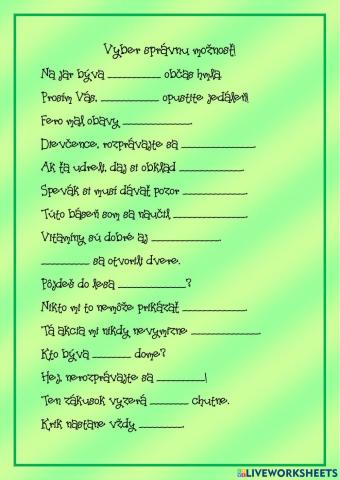 Vyber správnu možnosť!
Na jar býva __________ občas hmla.
Prosím Vás, __________ opustite jedáleň!
Fero mal obavy ____________.
Dievčence, rozprávajte sa _____________.
Ak ťa udreli, daj si obklad ___________.
Spevák si musí dávať pozor ___________.
Túto báseň som sa naučil _____________.
Vitamíny sú dobré aj ____________.
_________ sa otvorili dvere.
Pôjdeš do lesa ____________?
Nikto mi to nemôže prikázať ___________.
Tá akcia mi nikdy nevymizne ____________.
Kto býva _______ dome?
Hej, nerozprávajte sa _________!
Ten zákusok vyzerá _______ chutne.
Krik nastane vždy ________.
LIVEWORKSHEETS